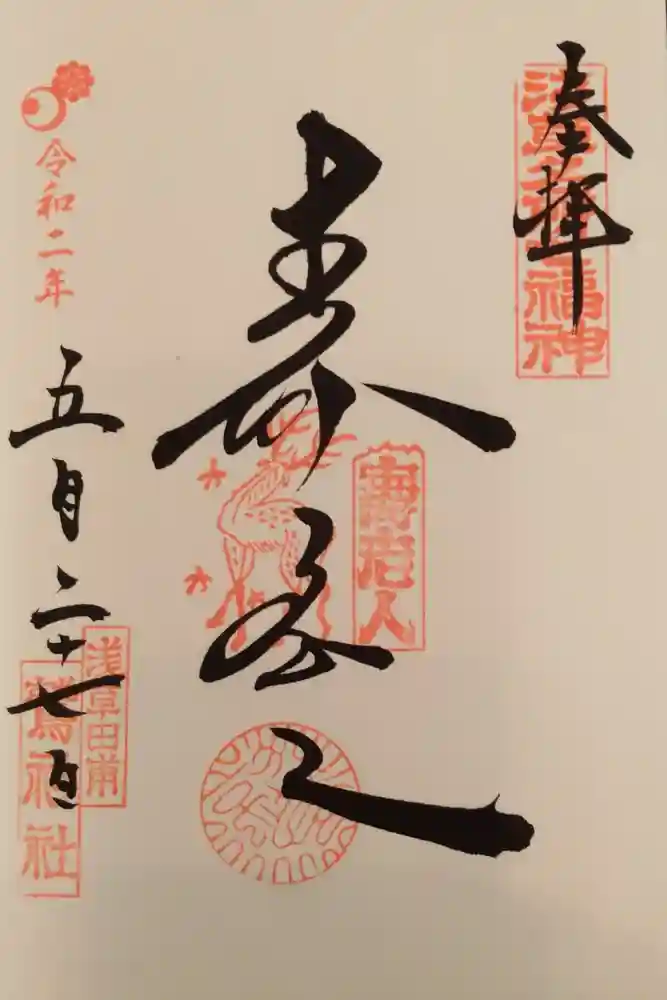 奉拝
浅草名所七福神
寿老人
壽老人
令和二年
五月二十七日
浅草田甫
鷲神社